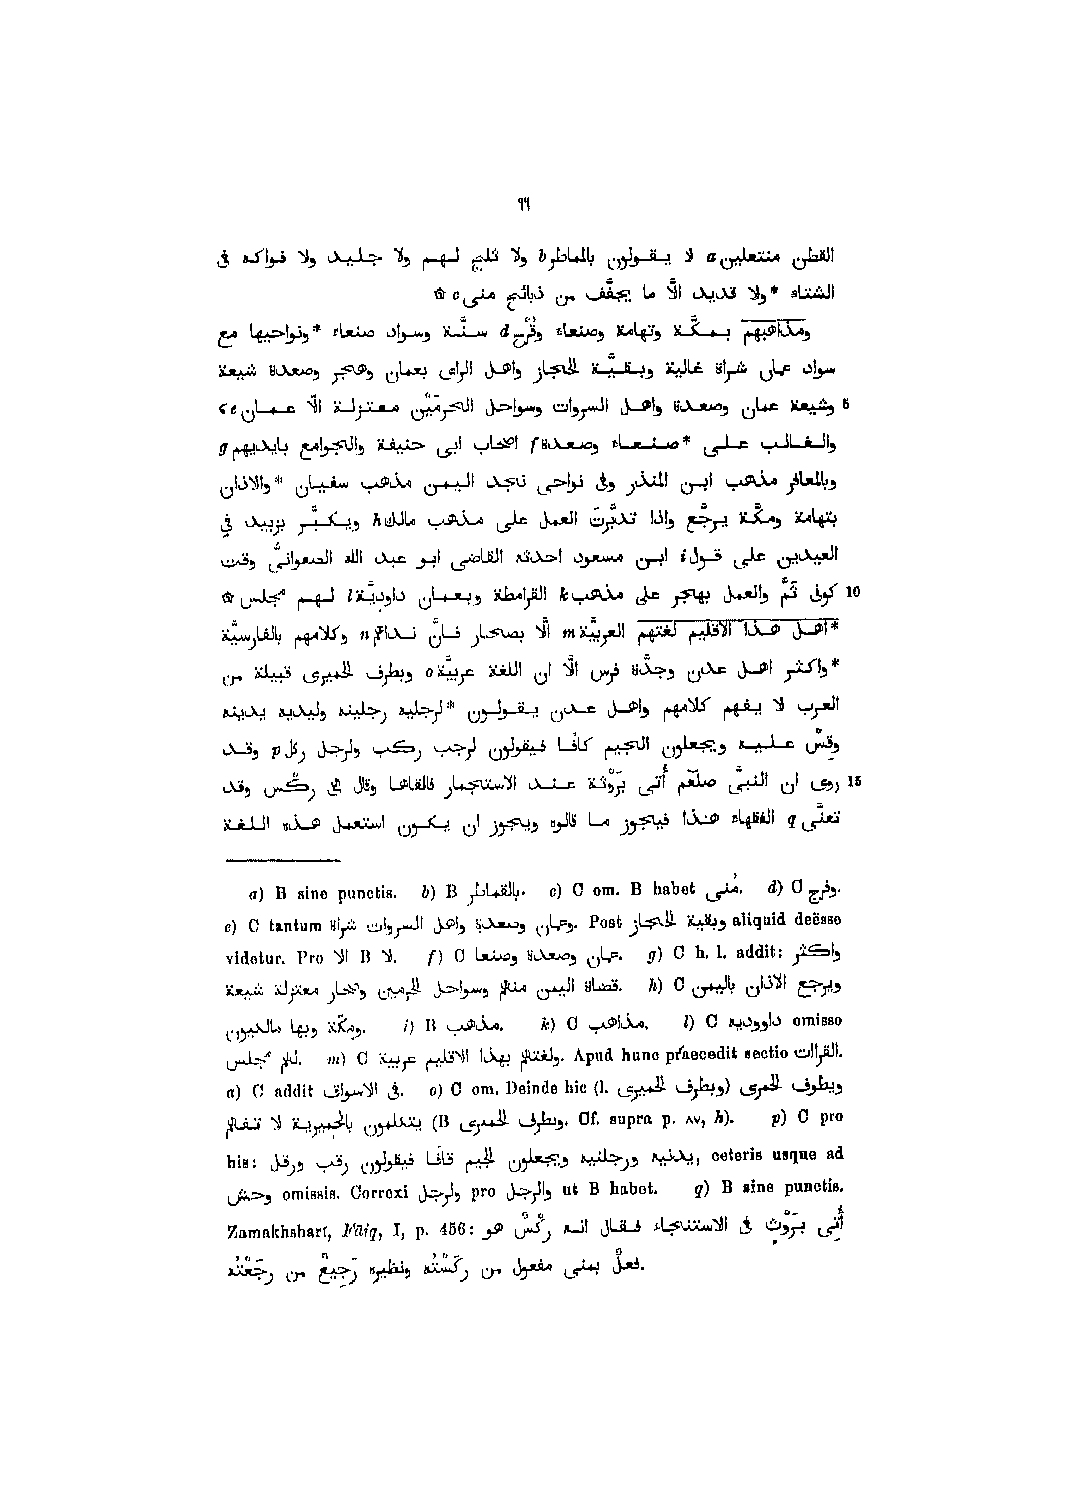 ٩٦
القطن منتعلين a لا يقولون بالماطر b ولا ثلج لهم ولا جليد ولا فواكه فى
الشتاء *ولا قديد الّا ما يجفَّف من ذبائح منى c ۞
ومذاهبهم بمكّة وتهامة وصنعاء وقُرْح d سنّة وسواد صنعاء *ونواحيها مع
سواد عمان شراة غالية وبقيّة الحجاز واهل الراى بعمان وهجر وصعدة شيعة
5 وشيعة عمان وصعدة واهل السروات وسواحل الحرمَيْن معتزلة الّا عمان e
والغالب على *صنعاء وصعدة f اصحاب ابى حنيفة والجوامع بايديهم g
وبالمعافر مذهب ابن المنذر وفى نواحى نجد اليمن مذهب سفيان *والاذان
بتهامة ومكّة يرجَّع واذا تدبّرتَ العمل على مذهب مالك h ويكبَّر بزبيد فى
العيدين على قول i ابن مسعود احدثه القاضى ابو عبد الله الصعوانىُّ وقت
10 كونى ثَمَّ والعمل بهاجر على مذهب k القرامطة وبعمان داوديّة l لهم مجلس ۞
*اهل هذا الاقليم لغتهم العربيّة m الّا بصحار فانَّ نداءهم n وكلامهم بالفارسيّة
*واكثر اهل عدن وجدّة فرس الّا ان اللغة عربيّة o وبطرف الحميرى قبيلة من
العرب لا يفهم كلامهم واهل عدن يقولون *لرجليه رجلينه وليديه يدينه
وقسْ عليه ويجعلون الجيم كافًا فيقولون لرجب ركب ولرجل ركل p وقد
15 روى ان النبىَّ صلّعم أُتى برَوْثة عند الاستجمار فالقاها وقال هى ركْس وقد
تعنَّى q الفقهاء هذا فيجوز ما قالوه ويجوز ان يكون استعمل هذه اللغة
a) B sine punctis. b) B بالقماطر. c) C om. B habet مُنى. d) C وفرج.
e) C tantum وعمان وصعدة واهل السروات شراة. Post وبقية الحجاز aliquid deësse
videtur. Pro الا B لا. f) C عمان وصعدة وصنعا. g) C h. l. addit: واكثر
قضاة اليمن منهم وسواحل الحرمين وصحار معتزلة شيعة. h) C ويرجع الاذان باليمن
ومكّة وبها مالكيون. i) B مذهب. k) C مذاهب. l) C داووديه omisso
لهم مجلس. m) C ولغتهم بهذا الاقليم عربية. Apud hunc praecedit sectio القراات.
n) C addit فى الاسواق. o) C om. Deinde hic (l. وبطرف الحميرى) وبطوف الحمرى
يتكلمون بالحميرية لا تفهم (B وبطرف الحمىرى. Cf. supra p. ٨٧, h). p) C pro
his: يدينه ورجلنيه ويجعلون الجيم قافا فيقولون رقب ورقل, ceteris usque ad
وحش omissis. Correxi ولرجل pro والرجل ut B habet. q) B sine punctis.
Zamakhsharî, Fâiq, I, p. 456: أُتى برَوْثٍ فى الاستنجاء فقال انه رِكْسٌ هو
فعلٌ بمعنى مفعول من ركَسْتُه ونظيره رَجِيعٌ من رجَعْتُه.